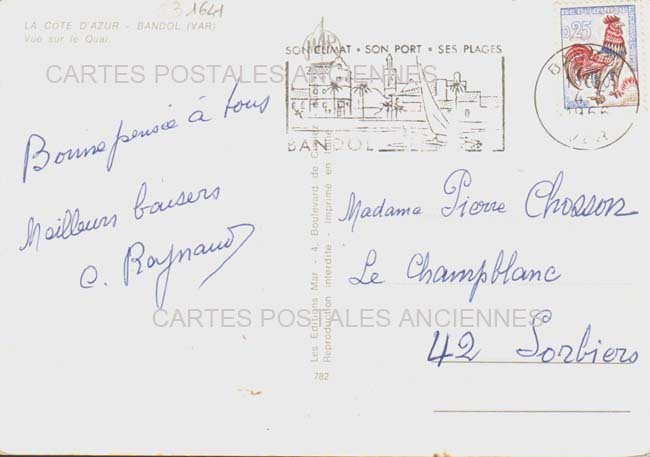 83 1641
LA COTE D'AZUR - BANDOL (VAR)
Vue sur le Quai.
SON CLIMAT • SON PORT • SES PLAGES
BANDOL
0,25
VAR
CARTES POSTALES ANCIENNES
Bonne pensée à tous
Meilleurs baisers
C. Raynaud
Les Editions Mar - 4, Boulevard de
Reproduction interdite - Imprimé en
782
Madame Pierre Chosson
Le Champblanc
42 Sorbiers
CARTES POSTALES ANCIENNES